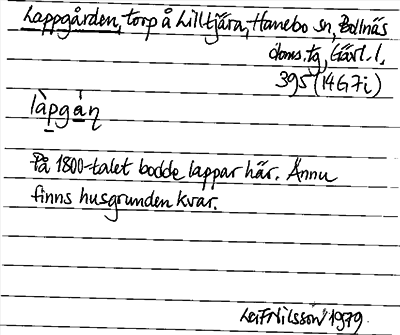 Lappgården, torp å Lilltjära, Hanebo sn, Bollnäs
doms.tg, Gävl. l.
395 (14G7i)
làpgán̥
På 1800-talet bodde lappar här. Ännu
finns husgrunden kvar.
Leif Nilsson 1979.